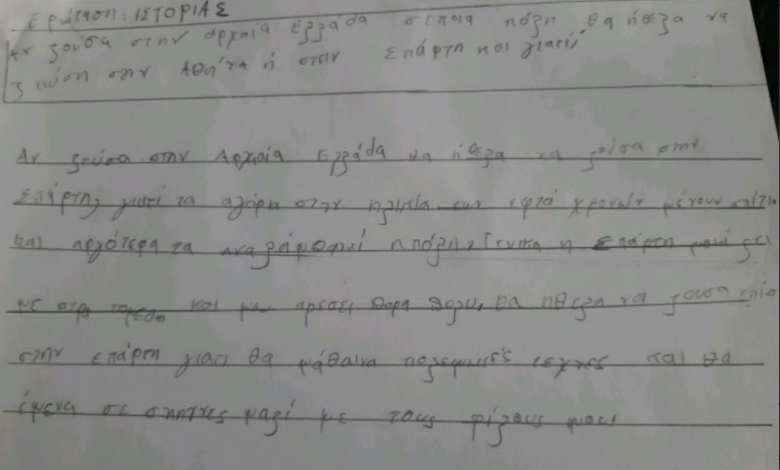 Ερώτηση: ΙΣΤΟΡΙΑΣ
Αν ζούσα στην αρχαία Ελλάδα σε ποια πόλη θα ήθελα να
ζήσω στην Αθήνα ή στην Σπάρτη και γιατί;
Αν ζούσα στην Αρχαία Ελλάδα θα ήθελα να ζούσα στην
Σπάρτη, γιατί τα αγόρη στην ηλικία των εφτά χρονών μένουν σπίτι.
και αργότερα τα αναλάμβανει η πόλη. Γενικα η Σπάρτη μοιάζει
με στρατοπεδο και μου αρεσει παρα πολυ, θα ηθελα να ζουσα επισ
στην Σπάρτη γιατι θα μάθαινα πολεμικές τεχνες και θα
έμενα σε σκηνες μαζί με τους φίλους μου.